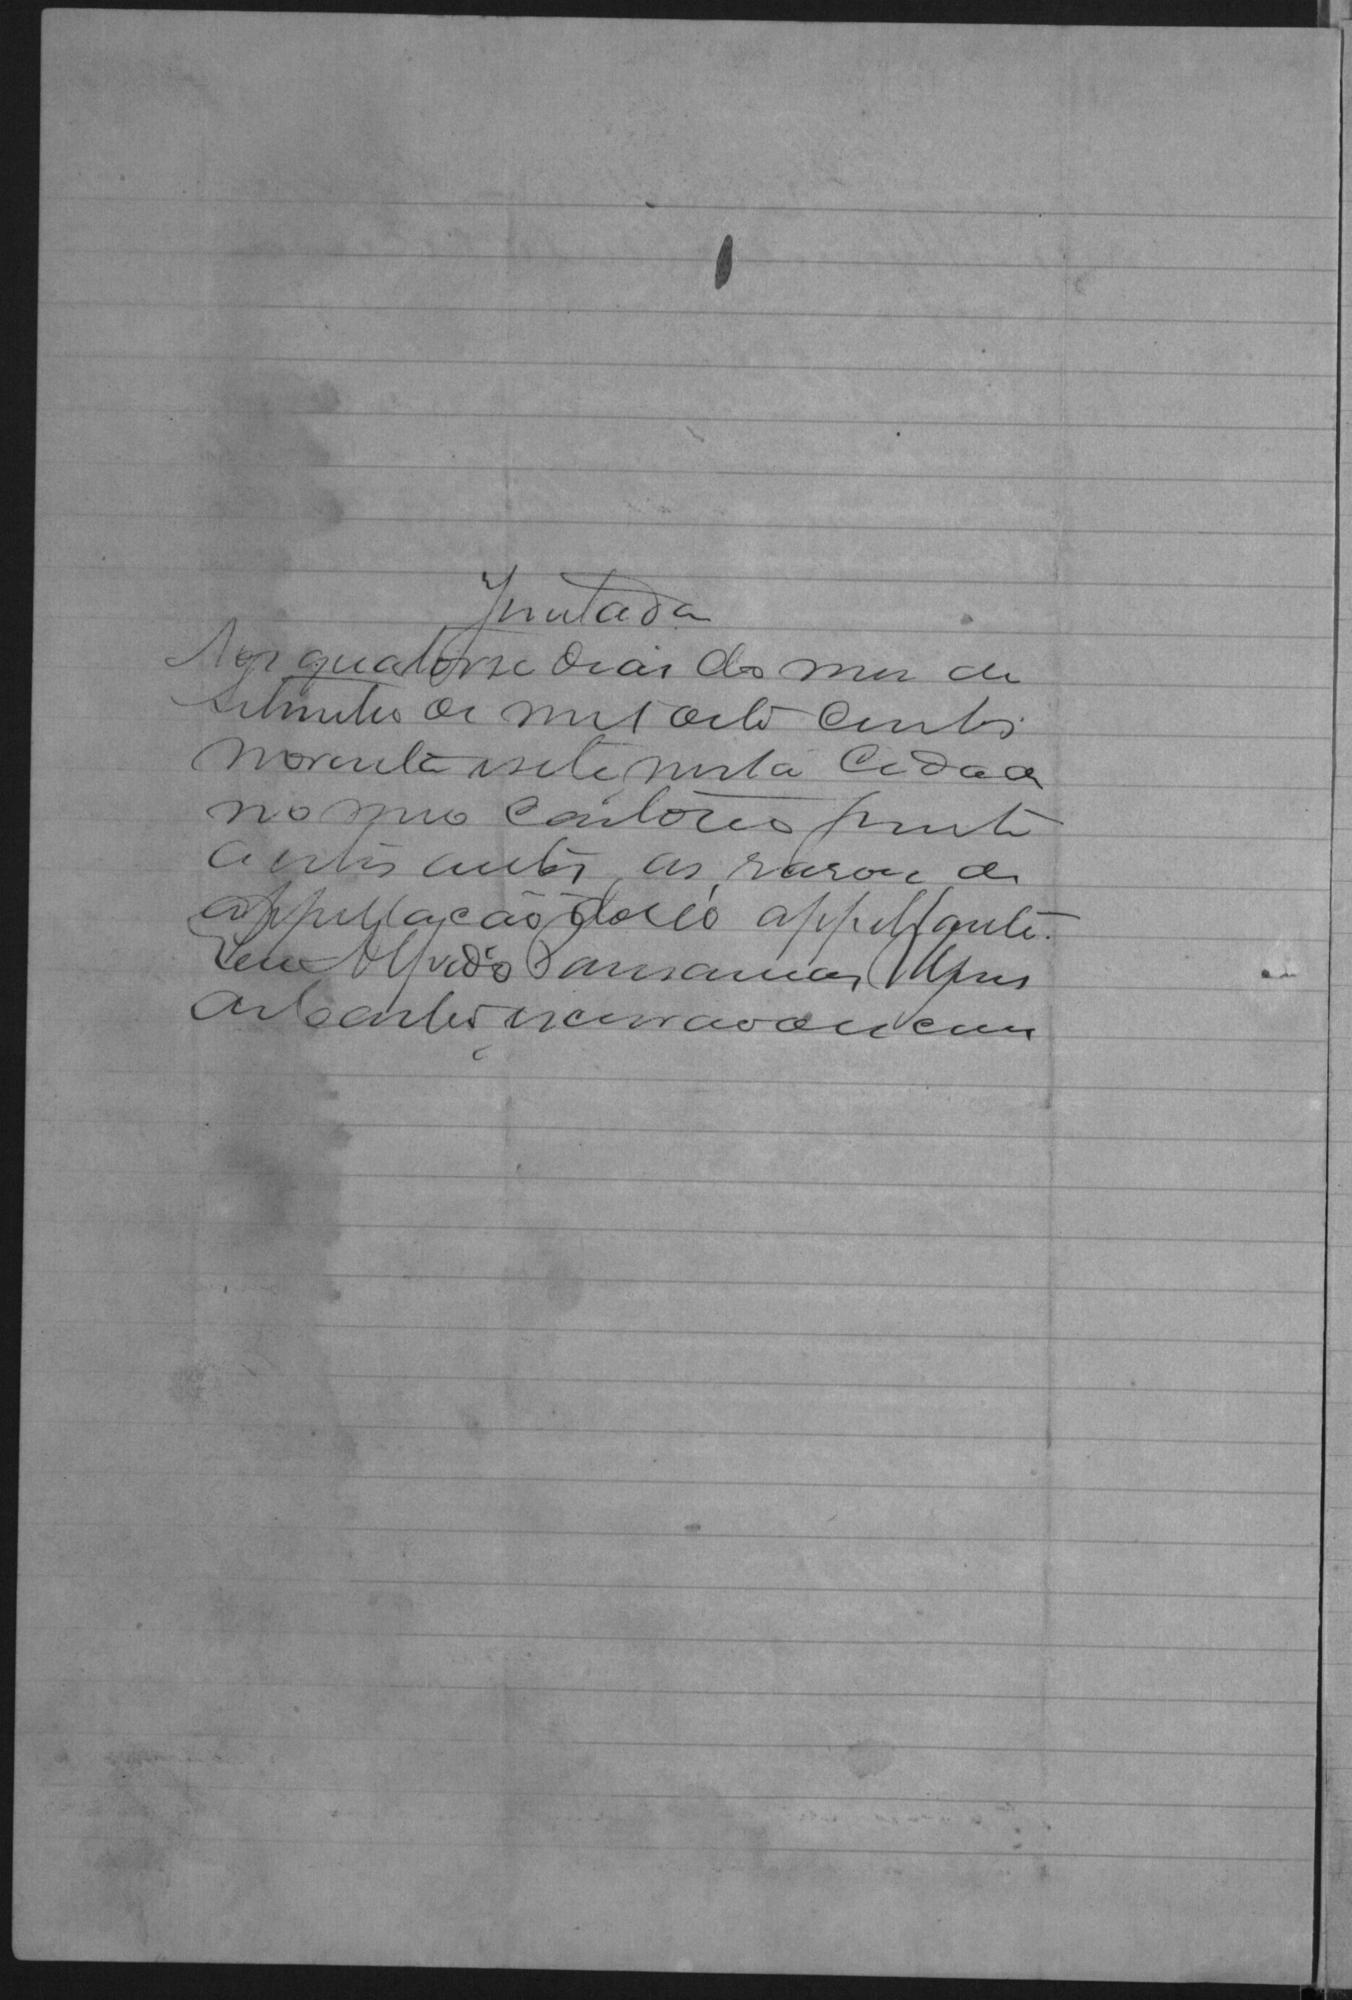 Juntada
Aos quatorse dias do mes de
setembro de mil oito centos
noventa e sete nesta Cidade
no meo Cartorio junto
a estes autos as rasoes de
appellação do reo appellante.
Eu Alfredo
de Castro escrivão o escrevi